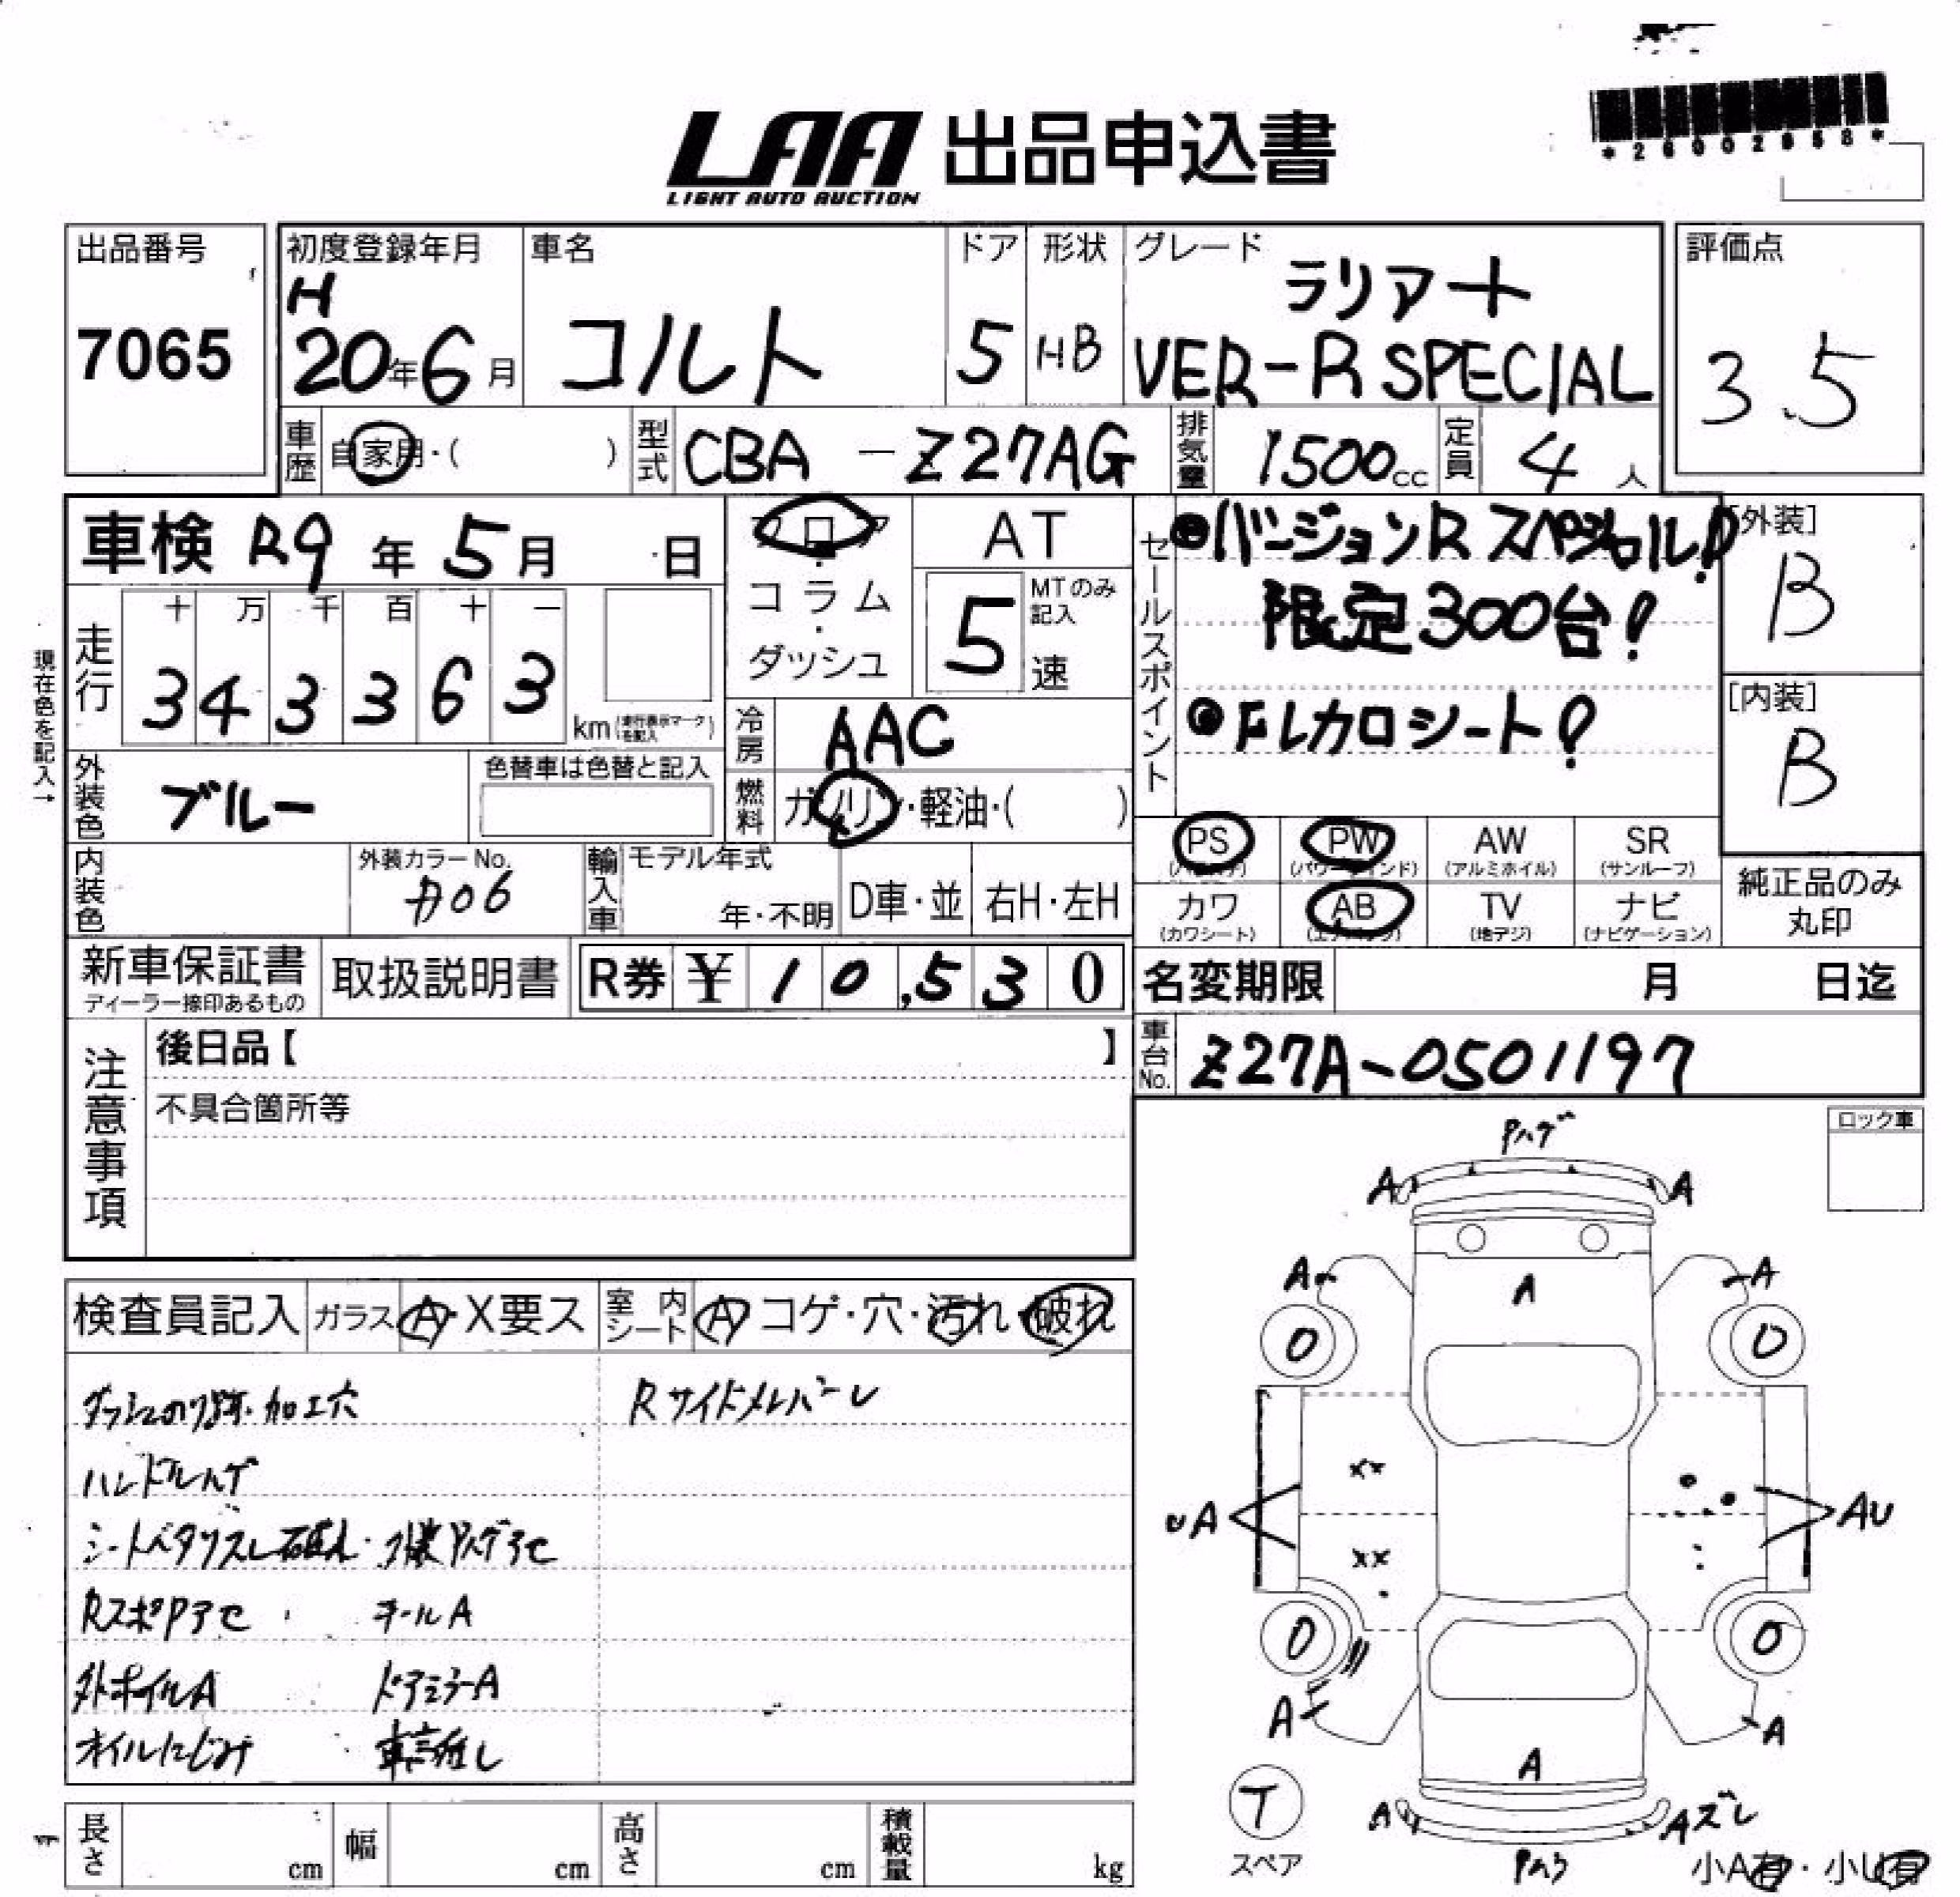 LAA 出品申込書
LIGHT AUTO AUCTION
*26002958*
出品番号
7065
初度登録年月
H
20年6月
車名
コルト
ドア
5
形状
HB
グレード
ラリアート
VER-R SPECIAL
評価点
3.5
車歴
自家用・( )
型式
CBA-Z27AG
排気量
1500cc
定員
4人
車検 R9年5月 日
フロア
・
コラム
・
ダッシュ
AT
5
MTのみ
記入
速
セールスポイント
バージョンRスペシャル!
限定300台!
レカロシート!
[外装]
B
[内装]
B
現在色を記入→
走行
十 万 千 百 十 一
3 4 3 3 6 3
km(走行表示マークを記入)
冷房
AAC
燃料
ガソリン・軽油・( )
外装色
ブルー
色替車は色替と記入
内装色
外装カラーNo.
D06
輸入車
モデル年式
年・不明
D車・並
右H・左H
PS
(パワステ)
PW
(パワーウインド)
AW
(アルミホイル)
SR
(サンルーフ)
カワ
(カワシート)
AB
(エアバック)
TV
(地デジ)
ナビ
(ナビゲーション)
純正品のみ
丸印
新車保証書
ディーラー捺印あるもの
取扱説明書
R券 ¥ 10,530
名変期限 月 日迄
車台No.
Z27A-0501197
注意事項
後日品【 】
不具合箇所等
ロック車
検査員記入
ガラス
A・X要ス
室内シート
A コゲ・穴・汚れ・破れ
ダッシュのり跡・加工穴
Rサイドメンバーレ
ハンドルハゲ
オイルにじみ
Rスポ
外ホイルA
ドアミラーA
Pハゲ
A A
A A
A
0 0
XX
UA AU
XX
0 0
A A
A
T
スペア
A Aズレ
小A有・小U有
長さ cm
幅 cm
高さ cm
積載量 kg